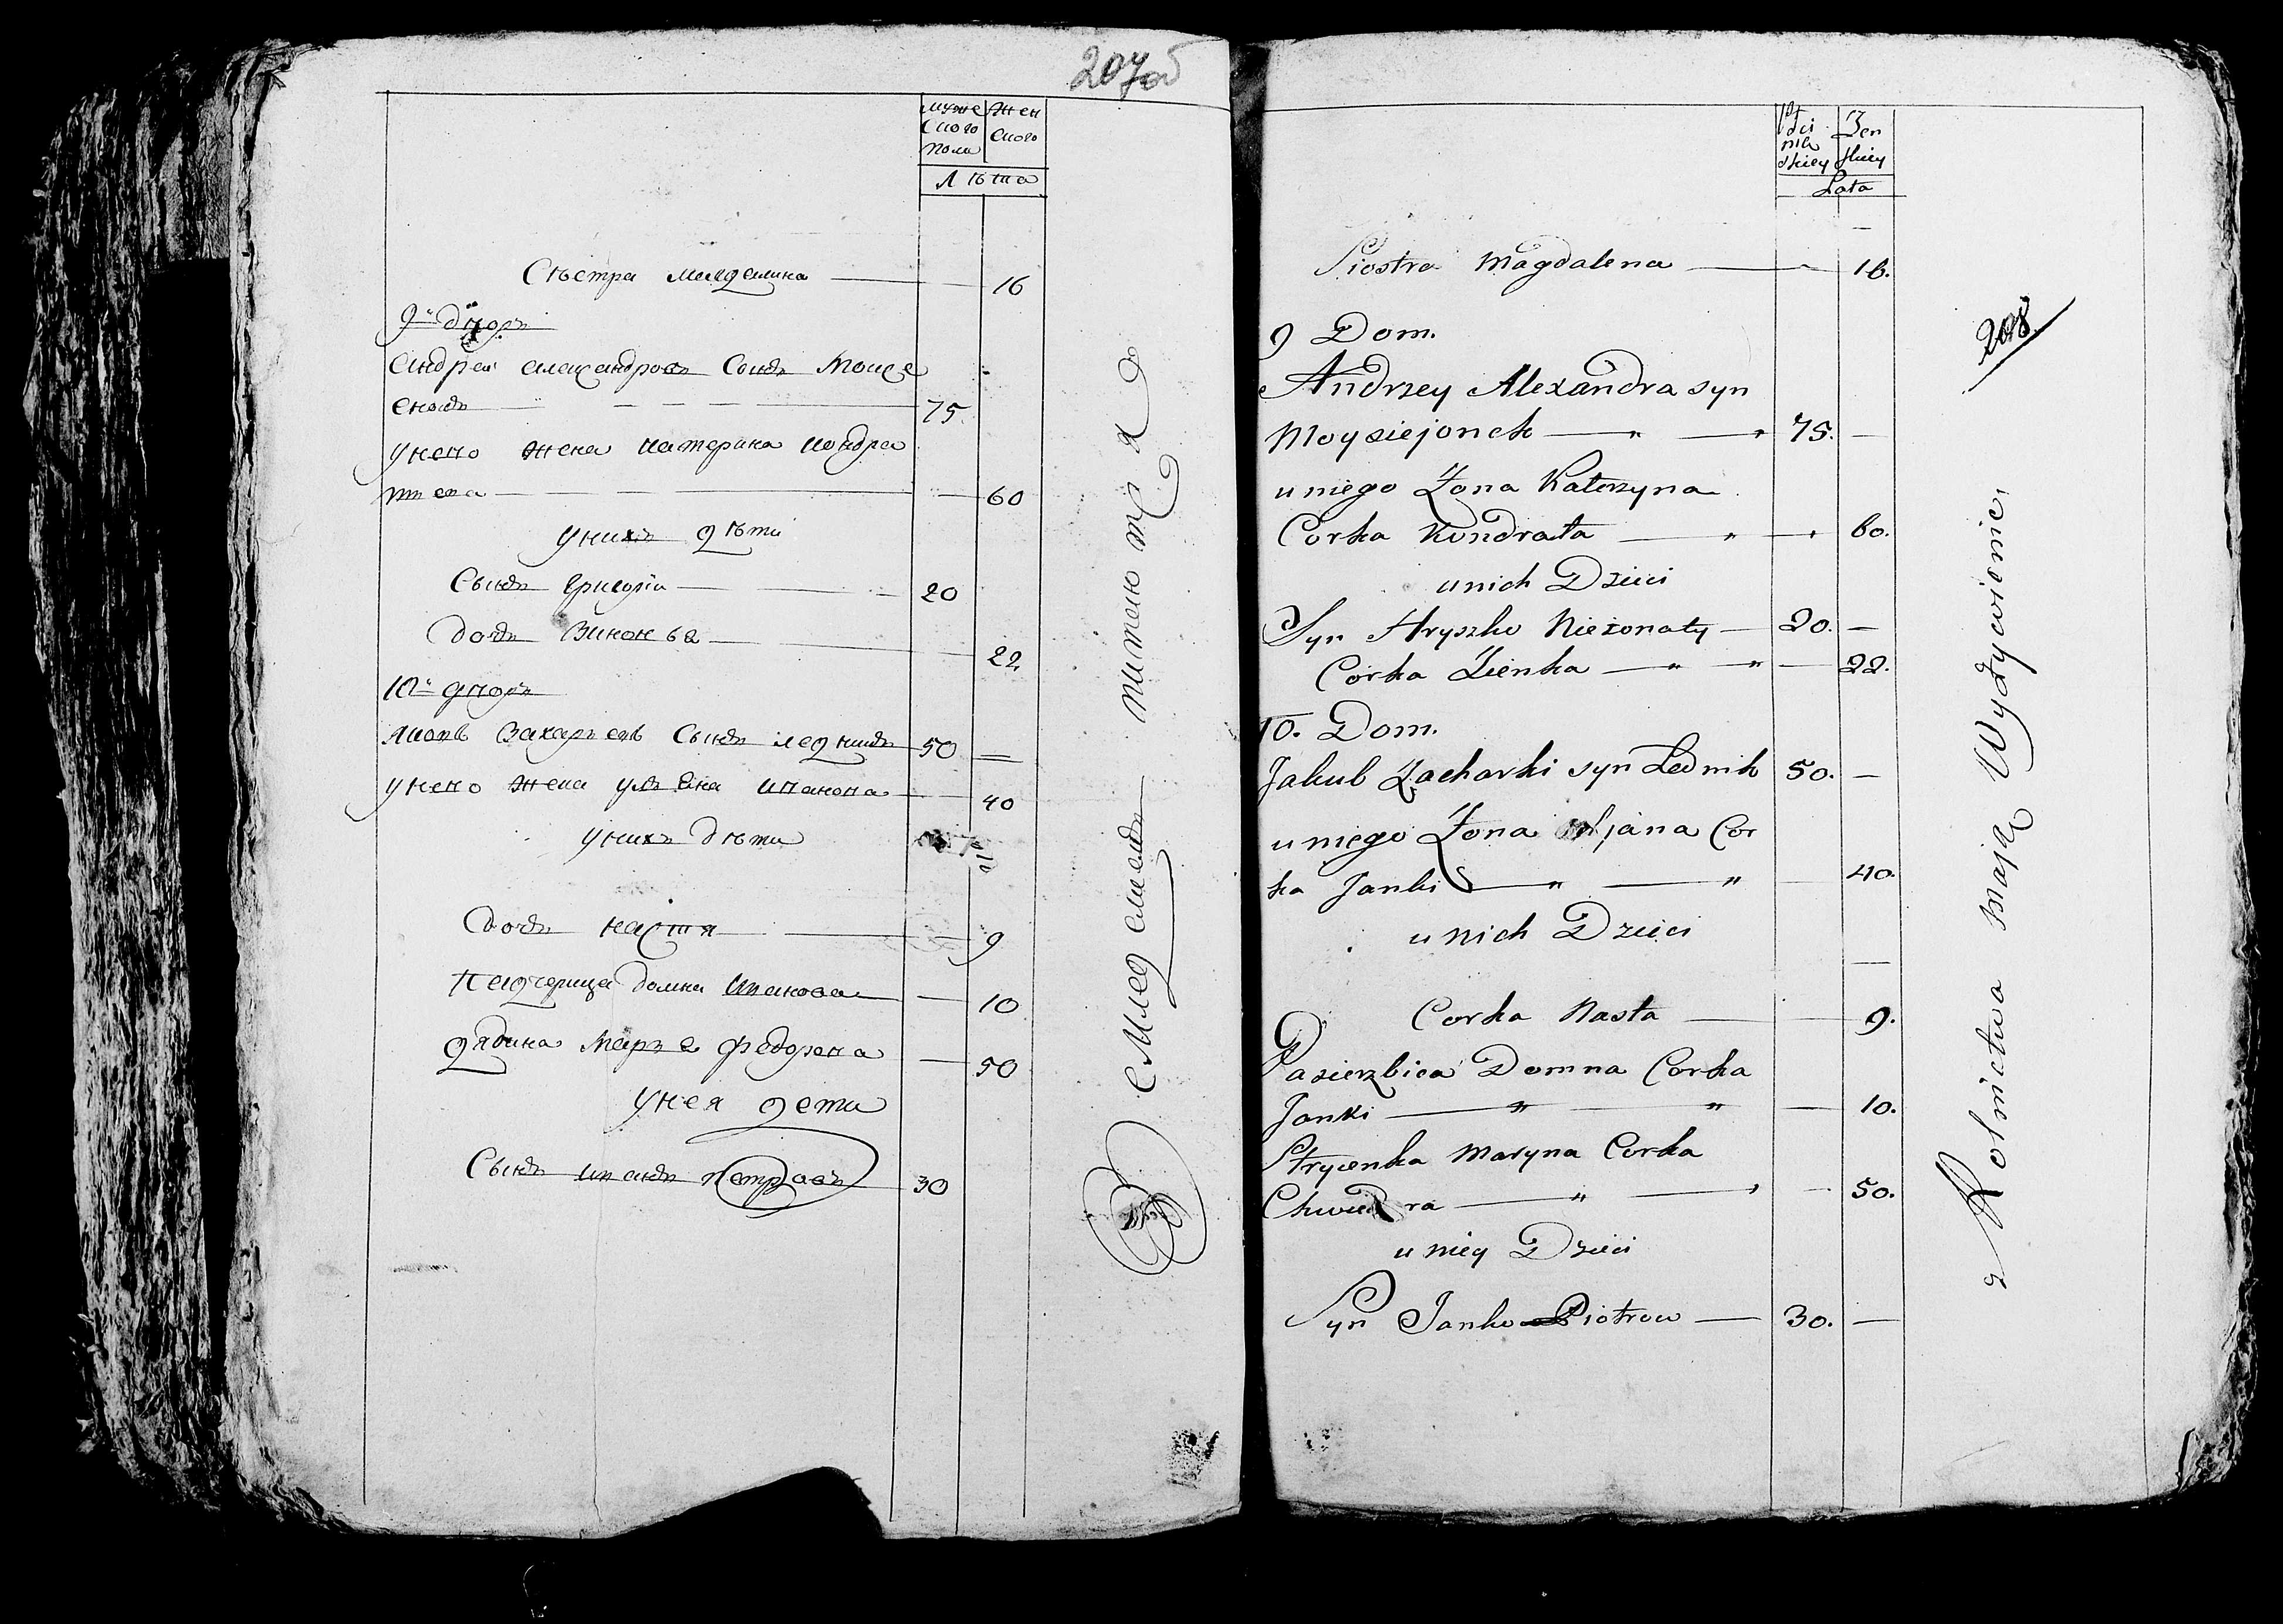 207об
муже Жен
ского ского
пола
лѣта
Сѣстра магдалина 16
9й двор
Андрей александровъ Сынъ Мойсе
енокъ 75
унего жена катерина кондра
тева 60
униxъ дѣти
Сынъ григорiи 20
дочь Зиновья 22
10й двор
Яковъ Захарьевъ Сынъ ледникъ 50 —
унего жена ульяна иванова 40
унихъ дѣти
дочь настя 9
падчерица домна иванова 10
дядина марья федорова 50
унея дети
Сынъ иванъ петровъ 30
питаютца
208
Płci Żen
mę skiey
skiey
Lata
Siostra Magdalena 16.
9 Dom.
Andrzey Alexandra syn
Moysiejonek 75. —
u niego Żona Katerzyna
Corka Kondrata 60.
u nich Dzieci
Syn Hryszko Nieżonaty 20. —
Corka Zienka 22.
10. Dom.
Jakub Zacharki syn Lednik 50. —
u niego Żona Uljana Cor
ka Janki 40.
u nich Dzieci
Corka Nasta 9.
Pasierzbica Domna Corka
Janki 10.
Stryienka Maryna Corka
Chwiedora 50.
u niey Dzieci
Syn Janko Piotrow 30. —
z Rolnictwa mają Wyżywienie